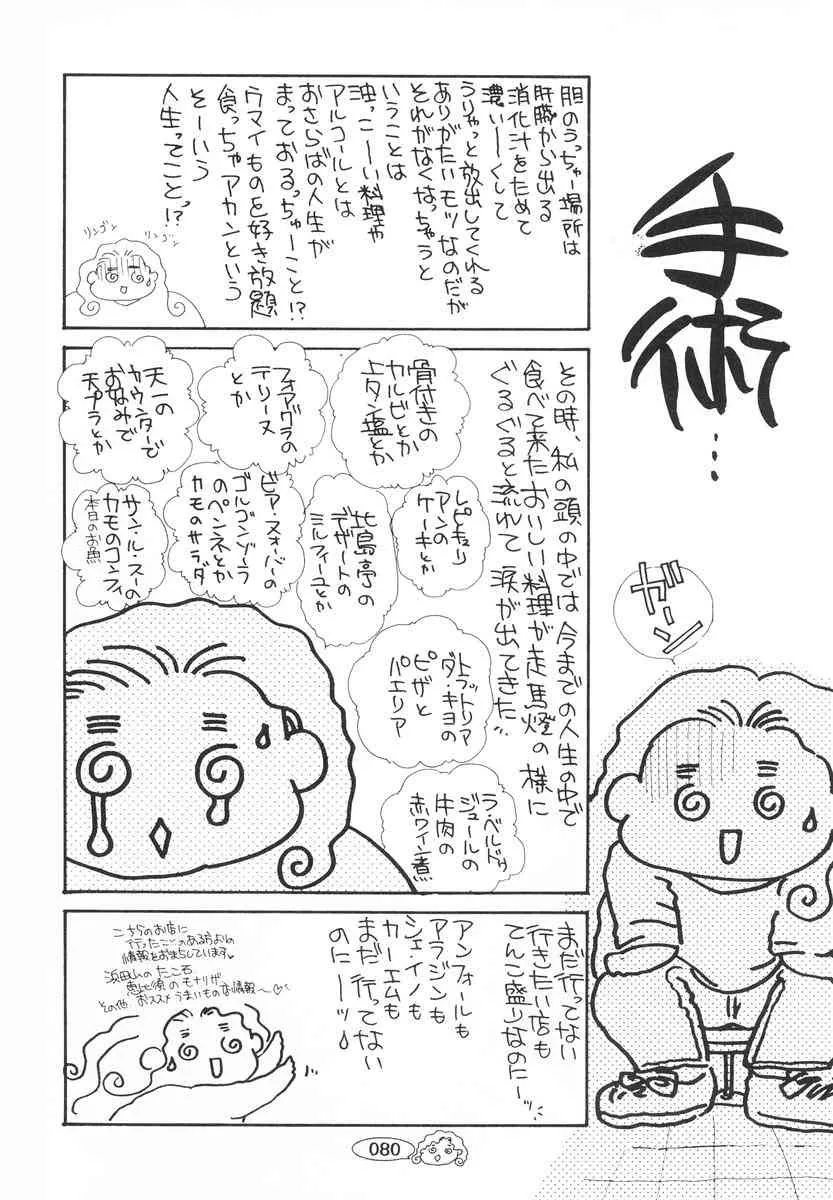 手術…
ガーン
胆のうっちゅー場所は
肝臓から出る
消化汁をためて
濃いーくして
うりゃっと放出してくれる
ありがたいモツなのだが
それがなくなっちゃうと
いうことは
油っこーい料理や
アルコールとは
おさらばの人生が
まっておるっちゅーこと!?
ウマイものを好き放題
食っちゃアカンという
そーいう
人生ってこと!?
リンゴン
リンゴン
その時、私の頭の中では今までの人生の中で
食べて来たおいしい料理が走馬燈の様に
ぐるぐると流れて涙が出てきた
骨付きの
カルビとか
上タン塩とか
フォアグラの
テリーヌ
とか
天一の
カウンターで
お好みで
天プラとか
レピキュリ
アンの
ケーキとか
比島亭の
デザートの
ミルフィーユとか
ビア・ヌォーバーの
ゴルゴンゾーラ
のペンネとか
カモのサラダ
サン・ル・スーの
カモのコンフィ
本日のお魚
トラットリア
ダ・キヨの
ピザと
パエリア
ラ・ベルドゥ
ジュールの
牛肉の
赤ワイン煮
まだ行ってない
行きたい店も
てんこ盛りなのにーッ
アンフォールも
アラジンも
シェ・イノも
カーエムも
まだ行ってない
のにーッ
こちらのお店に
行ったことのある方よりの
情報をおまちしています♥
浜田山のたこ石
恵比須のモナリザ
その他おススメうまいもの店情報〜♡
080